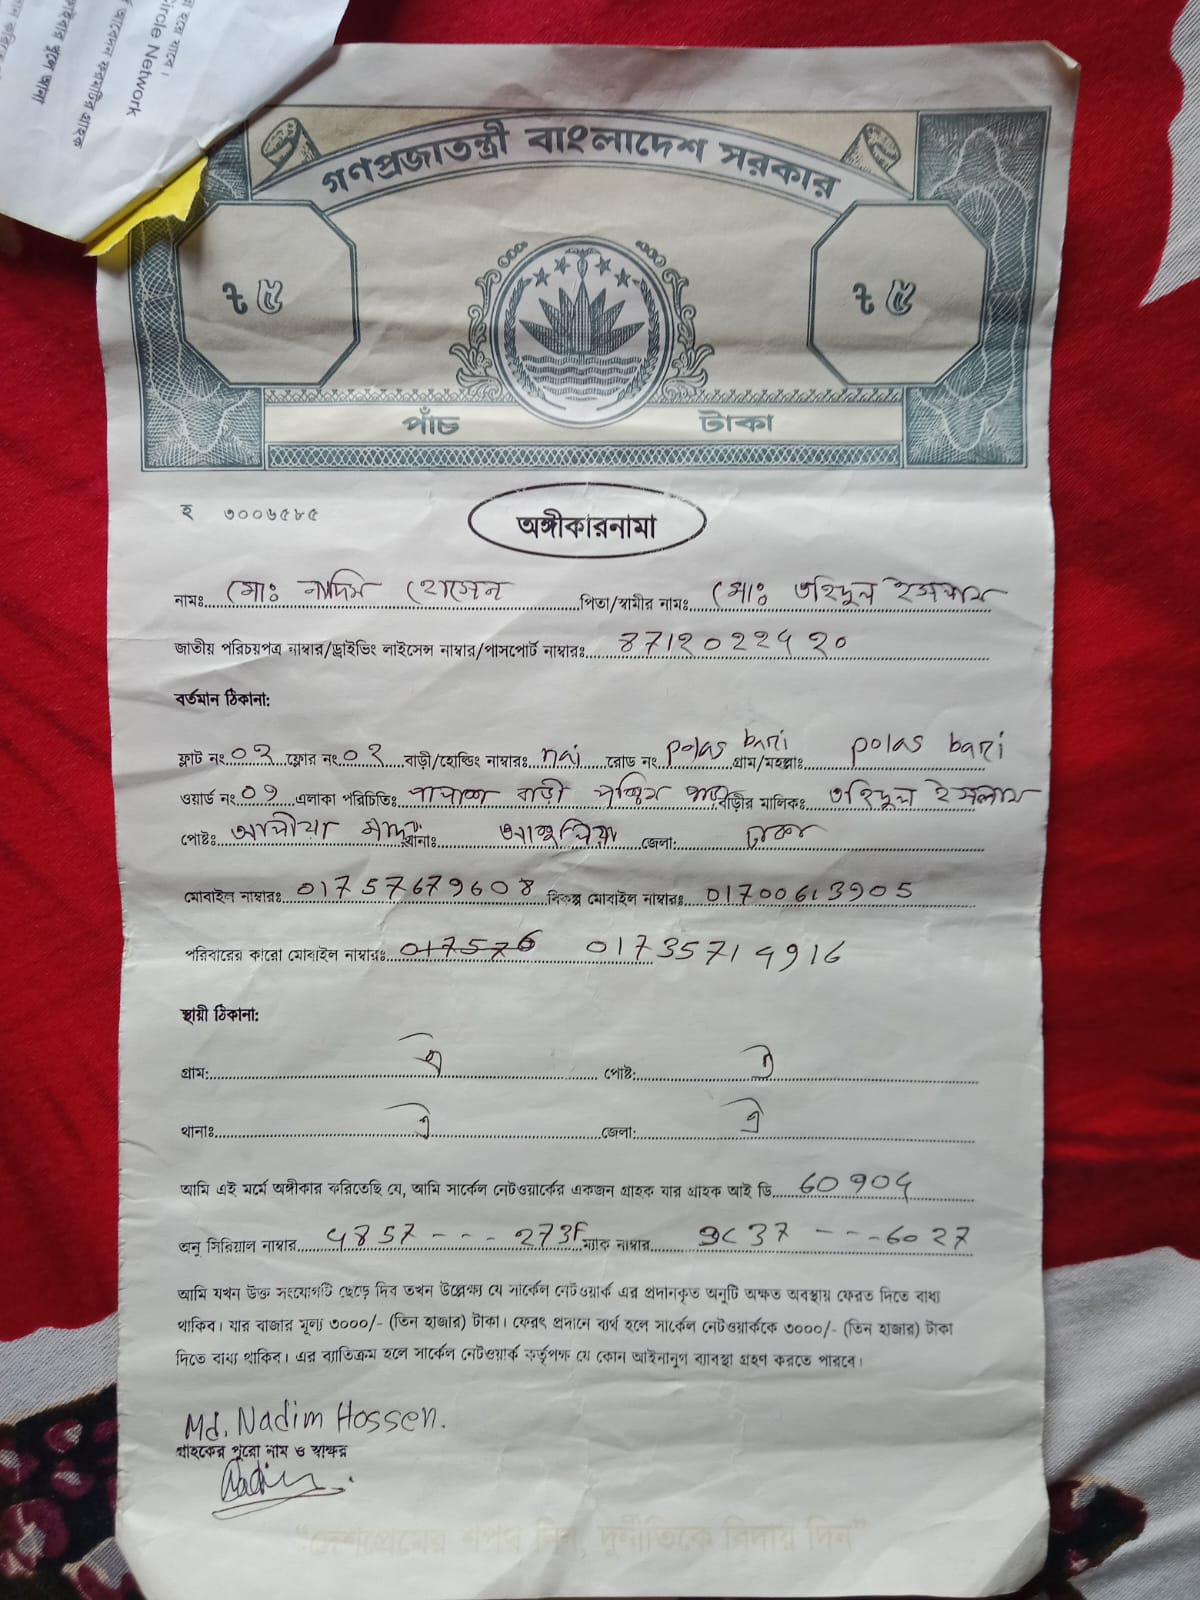 ন হয়ে যাবে।
Circle Network
গণপ্রজাতন্ত্রী বাংলাদেশ সরকার
৳ ৫ ৳ ৫
পাঁচ টাকা
হ ৩০০৬৫৮৫
অঙ্গীকারনামা
নামঃ মোঃ নাদিম হোসেন পিতা/স্বামীর নামঃ মোঃ তহিদুল ইসলাম
জাতীয় পরিচয়পত্র নাম্বার/ড্রাইভিং লাইসেন্স নাম্বার/পাসপোর্ট নাম্বারঃ
বর্তমান ঠিকানা:
ফ্লাট নং ০২ ফ্লোর নং ০২ বাড়ী/হোল্ডিং নাম্বারঃ nai রোড নং polas bari গ্রাম/মহল্লাঃ polas bari
ওয়ার্ড নং ০৭ এলাকা পরিচিতিঃ বাড়ী পশ্চিম বাড়ীর মালিকঃ তহিদুল ইসলাম
পোষ্টঃ থানাঃ আশুলিয়া জেলা: ঢাকা
মোবাইল নাম্বারঃ 01757679608 বিকল্প মোবাইল নাম্বারঃ 01700613905
পরিবারের কারো মোবাইল নাম্বারঃ 017576 01735714916
স্থায়ী ঠিকানা:
গ্রাম: ঐ পোষ্ট: ঐ
থানাঃ ঐ জেলা: ঐ
আমি এই মর্মে অঙ্গীকার করিতেছি যে, আমি সার্কেল নেটওয়ার্কের একজন গ্রাহক যার গ্রাহক আই ডি 60904
অনু সিরিয়াল নাম্বার 4857 --- 273F ম্যাক নাম্বার 9C37 --- 6027
আমি যখন উক্ত সংযোগটি ছেড়ে দিব তখন উল্লেক্ষ্য যে সার্কেল নেটওয়ার্ক এর প্রদানকৃত অনুটি অক্ষত অবস্থায় ফেরত দিতে বাধ্য
থাকিব। যার বাজার মূল্য ৩০০০/- (তিন হাজার) টাকা। ফেরৎ প্রদানে ব্যর্থ হলে সার্কেল নেটওয়ার্ককে ৩০০০/- (তিন হাজার) টাকা
দিতে বাধ্য থাকিব। এর ব্যাতিক্রম হলে সার্কেল নেটওয়ার্ক কর্তৃপক্ষ যে কোন আইনানুগ ব্যাবস্থা গ্রহণ করতে পারবে।
Md. Nadim Hossen.
গ্রাহকের পুরো নাম ও স্বাক্ষর
Nadim
“দেশপ্রেমের শপথ নিন, দুর্নীতিকে বিদায় দিন”